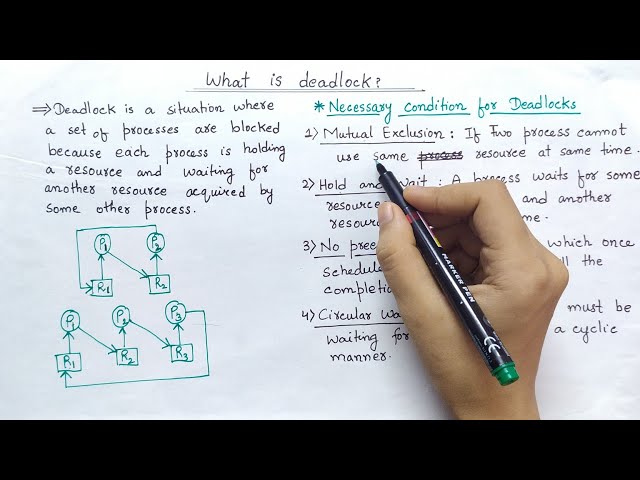 What is deadlock?
⇒ Deadlock is a situation where
a set of processes are blocked
because each process is holding
a resource and waiting for
another resource acquired by
some other process.
P1 P2
R1 R2
P1 P2 P3
R1 R2 R3
* Necessary condition for Deadlocks
1) Mutual Exclusion : If Two process cannot
use same process resource at same time.
2) Hold and Wait : A process waits for some
resource and another
me.
3) No which once
schedule ll the
completion
4) Circular must be
waiting for a cyclic
manner.
MARKER PEN